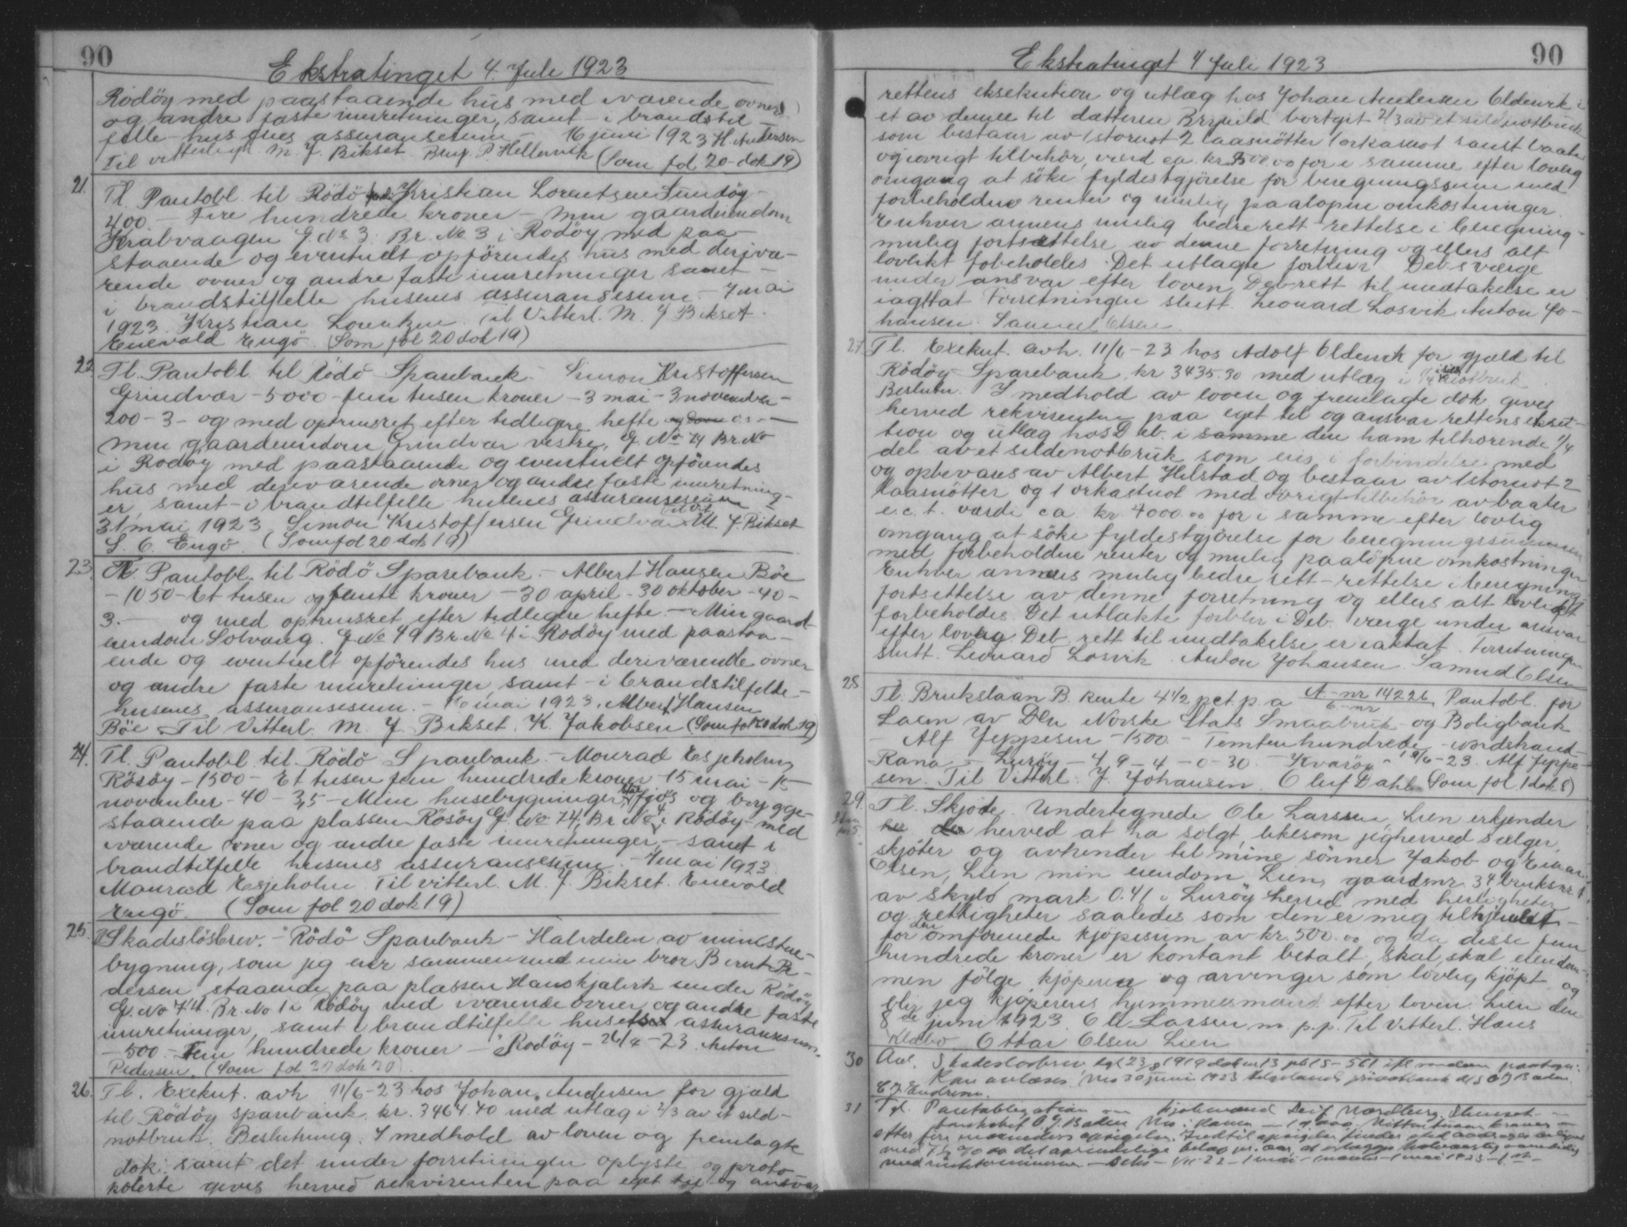 90
Ekstratinget 4. Juli 1923
Rödöy med paastaaende hus med iværende ovner
og andre faste innretninger, samt - i brandstil-
felle husenes assuransesum - 16 juni 1923 H. Andersen
Til vitterligh. M. J. Bikset Berg P Hellervik (Som fol 20 - dok 19)
21. Tl. Pantobl til Rödö Kristian Lorentsen Sundöy -
400 - Fire hundrede kroner - min gaardeiendom
Krabvaagen G. No 3. Br. No 3 i Rödöy med paa-
staaende og eventuelt opförendes hus med deriva-
rende ovner og andre faste innretninger samt -
i brandstilfelle husenes assuransesum - 7 mai
1923. Kristian Lorentzen. til Vitterl. M. J Bikset.
Enevald Engö. (Som fol 20 dok 19)
22 Tl. Pantobl til Rödö Sparebank - Simon Kristoffersen
Grindvær - 5000 - fem tusen kroner - 3 mai - 3 november -
200 - 3 - og med oprinsret efter tidligere hefte
min gaardeiendom Grindvær vestre, G. No 74 Br No
i Rödöy med paastaaende og eventuelt opförendes
hus med deriværende ovner og andre faste innretning-
er, samt - i brandtilfelle husenes assuransesum
31 mai 1923 Simon Kristoffersen Grindvær M. J. Bikset
L. C. Engö. (Som fol 20 dok 19)
23. Tl. Pantobl. til Rödö Sparebank. - Albert Hansen Böe
- 1050 - Et tusen og femti kroner - 30 april - 30 oktober - 40 -
3. - og med oprinsret efter tidligere hefte - Min gaard-
eiendom Solvang. G No 49 Br. No 4 i Rödöy med paastaa-
ende og eventuelt opförendes hus med deriværende ovner
og andre faste innretninger, samt - i brandstilfelle -
husenes assuransesum. - mai 1923. Albert Hansen
Böe Til Vitterl. M. J. Bikset. K. Jakobsen (Som fol 20 dok 19)
24. Tl. Pantobl. til Rödö Sparebank - Monrad Espeholm
Rösöy - 1500 - Et tusen fem hundrede kroner 15 mai - 15
november - 40 - 3,5 - Mine husebygninger og brygge
staaende paa plassen Rösöy G. No 74, Br No i Rödöy med
iværende ovner og andre faste innretninger, samt i
brandtilfelle husenes assuransesum. - 7 mai 1923
Monrad Espeholm. Til vitterl. M. J. Bikset. Enevald
Engö. (Som fol 20 dok 19)
25. Skadeslösbrev. - Rödö Sparebank - Halvdelen av min stue-
bygning, som jeg eier sammen med min bror Bernt Pe-
dersen, staaende paa plassen Hanskjalvik under Rödöy
G. No 74. Br. No 1 i Rödöy med iværende ovner og andre faste
innretninger, samt i brandtilfelle husets assuransesum.
- 500 - Fem hundrede kroner - Rödöy - 26/4 - 23. Anton
Pedersen. (Som fol 20 dok 20)
26. Tl. Exekut. avh 11/6 - 23 hos Johan Andersen for gjæld
til Rödöy sparebank kr. 3464.40 med utlæg i 2/3 av et sild-
notbruk. Beslutning. I medhold av loven og fremlagte
dok. samt det under forretningen oplyste og proto-
kolerte gives herved rekvirenten paa eget til og ansvar
90
Ekstratinget 4 Juli 1923
rettens eksekution og utlæg hos Johan Andersen Oldervik i
et av denne til datteren Brynild bortgit 2/3 av et sildnotbruk
som bestaar av 1 stornot 2 laasnötter 1 orkasnot samt baate
og övrigt tilbehör, værd ca. kr. 3500.00 for i samme efter lovlig
omgang at söke fyldestgjörelse for beregningssum med
forbeholdne renter og mulig paalöpne omkostninger.
Enhver annens mulig bedre rett - rettelse i beregning -
mulig fortsættelse av denne forretning og ellers alt
lovlikt forbeholdes. Det utlagte forblir i Deb's værge
under ansvar efter loven. Deb rett til undtakelse er
iagttat. Forretningen slutt. Leonard Losvik Anton Jo-
hansen. Samuel Olsen.
27. Tl. Exekut. avh. 11/6 - 23 hos Adolf Oldervik for gjæld til
Rödöy Sparebank kr 3435.30 med utlæg i 1/4 notbruk.
Beslutn. I medhold av loven og fremlagte dok. gives
herved rekvirenten paa eget til og ansvar rettens ekseku-
tion og utlæg hos Deb. i samme den ham tilhörende 1/4
del av et sildenotbruk som eies i forbindelse med
og opbevares av Albert Hilstad og bestaar av 1 stornot 2
laasnötter og 1 orkastnot med övrigt tilbehör av baater
e.c.t. værdi ca kr 4000.00 for i samme efter lovlig
omgang at söke fyldestgjörelse for beregningssummen
med forbeholdne renter og mulig paalöpne omkostninger
Enhver annens mulig bedre rett - rettelse i beregning
fortsettelse av denne forretning og ellers alt lovlig
forbeholdes. Det utlakte forblir i Deb. værge under ansvar
efter lovlig Deb. rett til undtakelse er iakttat. Forretningen
slutt. Leonard Losvik. Anton Johansen. Samuel Olsen
28 Tl. Brukslaan B. Rente 4 1/2 pct p.a A-nr 14226 Pantobl. for
Laan av Den Norske Stats Smaabruk og Boligbank
- Alf Jeppesen - 1500 - Femtenhundrede - Nordstrand -
Rana - Luröy - 4, 9 - 4 - 0 - 30. - Kvaröy - /6 - 23. Alf Jeppe-
sen. Til Vitterl. J. Johansen. Oluf Dahl. Som fol 1 dok 8)
29. Tl. Skjöte. Undertegnede Ole Larssen, Lien erkjender
herved at ha solgt, likesom jeg herved sælger,
skjöter og avhender til mine sönner Jakob og Einar
Olsen, Lien min eiendom Lien, gaardsnr. 34 bruksnr. 1
av skyld mark 0.41 i Luröy herred med herligheter
og rettigheter saaledes som den er mig tilhjemlet -
for den omforenede kjöpesum av kr. 500.00 og da disse fem
hundrede kroner er kontant betalt, skal skal eiendom-
men fölge kjöperne og arvinger som lovlig kjöpt og
blir jeg kjöperens hjemmelsmand efter loven. Lien den
8de juni 1923. Ole Larsen m.p.p. Til Vitterl. Hans
Klæbo Ottar Olsen Lien
30 Avl. Skadeslösbrev tgl 23/8 1919
Kan avlæses. Mo 30 juni 1923 Helgelands privatbank A/S O J Bålen
31 Tgl. Pantobligation